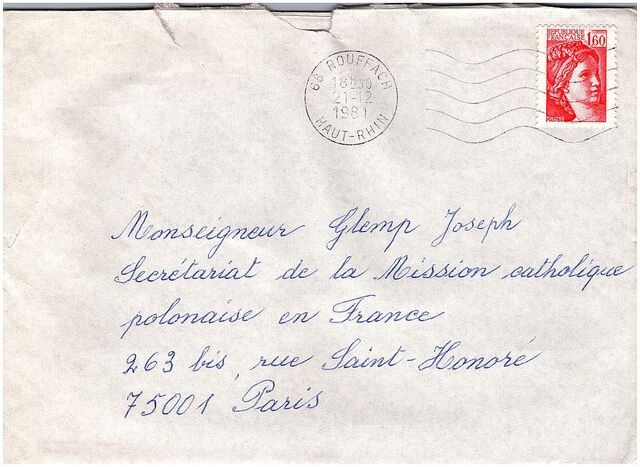 REPUBLIQUE
FRANÇAISE 1,60
POSTES
68 ROUFFACH
18H30
21-12
1981
HAUT-RHIN
Monseigneur Glemp Joseph
Secrétariat de la Mission catholique
polonaise en France
263 bis, rue Saint-Honoré
75001 Paris